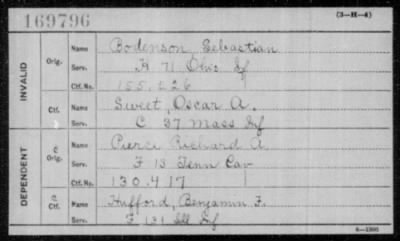 169796 (3-H-4)
INVALID
Orig. Name Bodenson, Sebastian
Serv. H 71 Ohio Inf
Ctf. No. 155,226
Ctf. Name Sweet, Oscar A.
Serv. C 37 Mass Inf
DEPENDENT
C Orig. Name Pierce Richard A
Serv. F 13 Tenn Cav
Ctf. No. 130.417
C Ctf. Name Hufford, Benjamin F.
Serv. F 131 Ill Inf